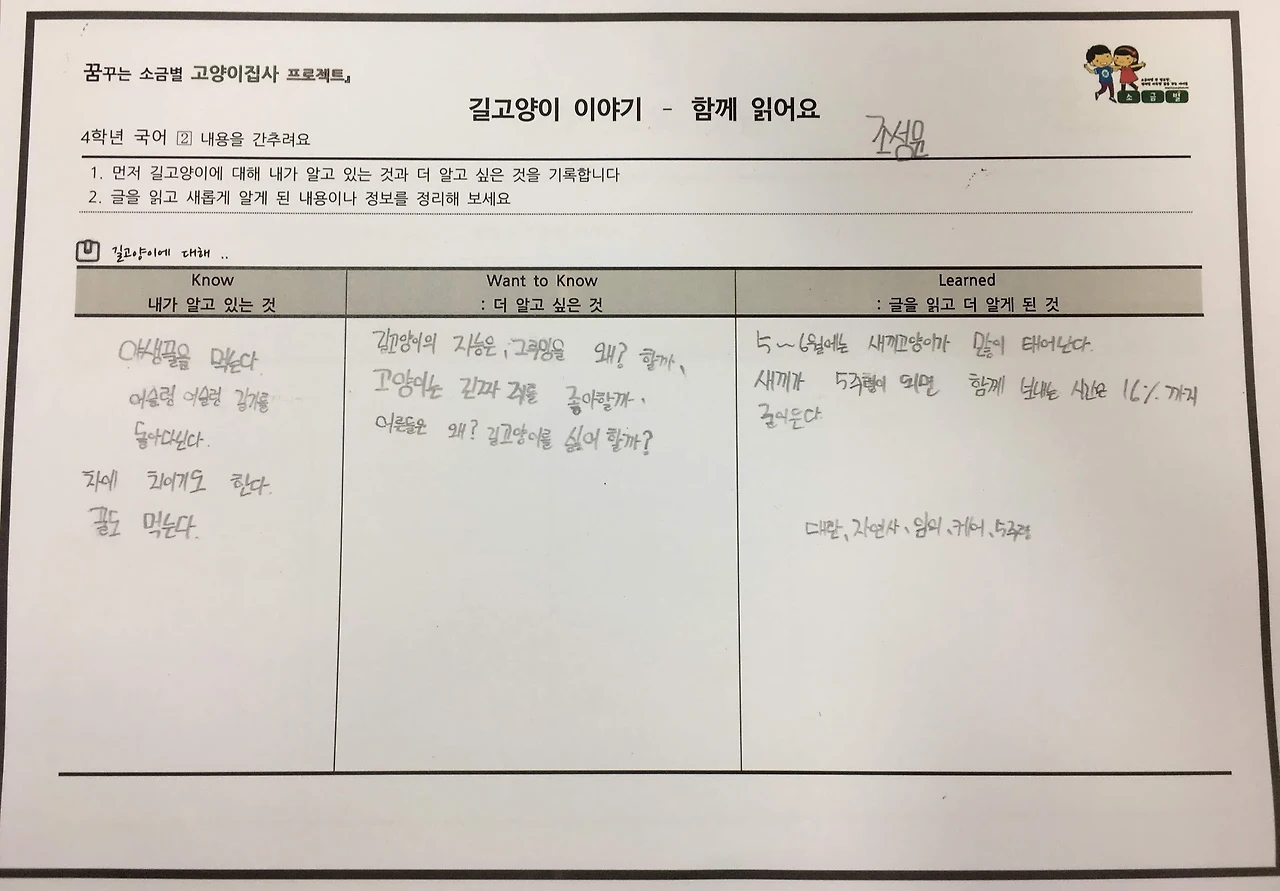 꿈꾸는 소금별 고양이집사 프로젝트』
길고양이 이야기 - 함께 읽어요
4학년 국어 ② 내용을 간추려요
조성문
1. 먼저 길고양이에 대해 내가 알고 있는 것과 더 알고 싶은 것을 기록합니다
2. 글을 읽고 새롭게 알게 된 내용이나 정보를 정리해 보세요
소 금 별
길고양이에 대해 ..
Know
내가 알고 있는 것
야생풀을 먹는다
어슬렁 어슬렁 길가를
돌아다닌다.
차에 치이기도 한다.
풀도 먹는다.
Want to Know
: 더 알고 싶은 것
길고양이의 지능은, 그루밍을 왜? 할까,
고양이는 진짜 쥐를 좋아할까.
어른들은 왜? 길고양이를 싫어 할까?
Learned
: 글을 읽고 더 알게 된 것
5~6월에는 새끼고양이가 많이 태어난다.
새끼가 5주령이 되면 함께 보내는 시간은 16% 까지
줄어든다
대란, 자연사, 임의, 케어, 5주령